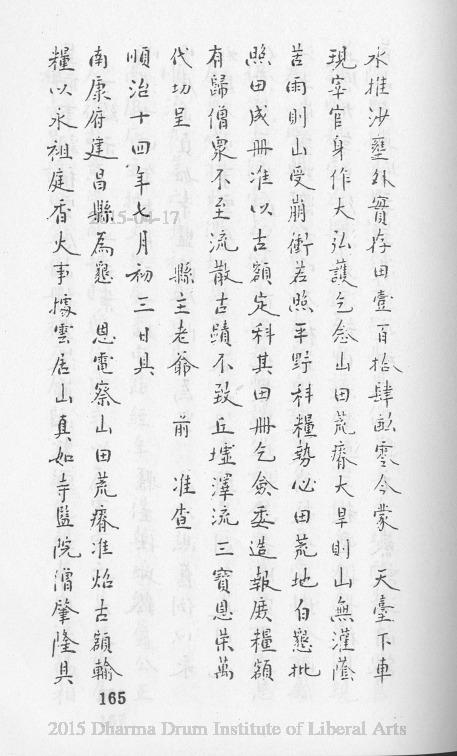 水推沙壅外實存田壹百拾肆畝零今蒙　天臺下車
現宰官身作大弘護乞念山田荒瘠大旱則山無灌蔭
苦雨則山受崩衝若照平野科糧勢必田荒地白懇批
照田成冊准以古額定科其田冊乞僉委造報庶糧額
有歸僧眾不至流散古蹟不致丘墟澤流三寶恩荣萬
代切呈　縣主老爺　前　准查
順治十四年七月初三日具
南康府建昌縣為懇　恩電察山田荒瘠准炤古額輸
糧以永祖庭香火事據雲居山真如寺監院僧肇隆具
165
2015-04-17
2015 Dharma Drum Institute of Liberal Arts